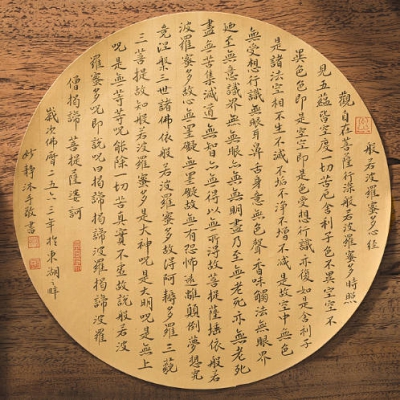 般若波羅蜜多心經
觀自在菩薩行深般若波羅蜜多時照
見五蘊皆空度一切苦厄舍利子色不異空空不
異色色即是空空即是色受想行識亦復如是舍利子
是諸法空相不生不滅不垢不淨不增不減是故空中無色
無受想行識無眼耳鼻舌身意無色聲香味觸法無眼界
迺至無意識界無無明亦無無明盡乃至無老死亦無老死
盡無苦集滅道無智亦無得以無所得故菩提薩埵依般若
波羅蜜多故心無罣礙無罣礙故無有恐怖遠離顛倒夢想究
竟涅槃三世諸佛依般若波羅蜜多故得阿耨多羅三藐
三菩提故知般若波羅蜜多是大神呪是大明呪是無上
呪是無等等呪能除一切苦真實不虛故說般若波
羅蜜多呪即說呪曰揭諦揭諦波羅揭諦波羅
僧揭諦菩提薩婆訶
歲次佛曆二五六三年於東湖畔
沐手敬書